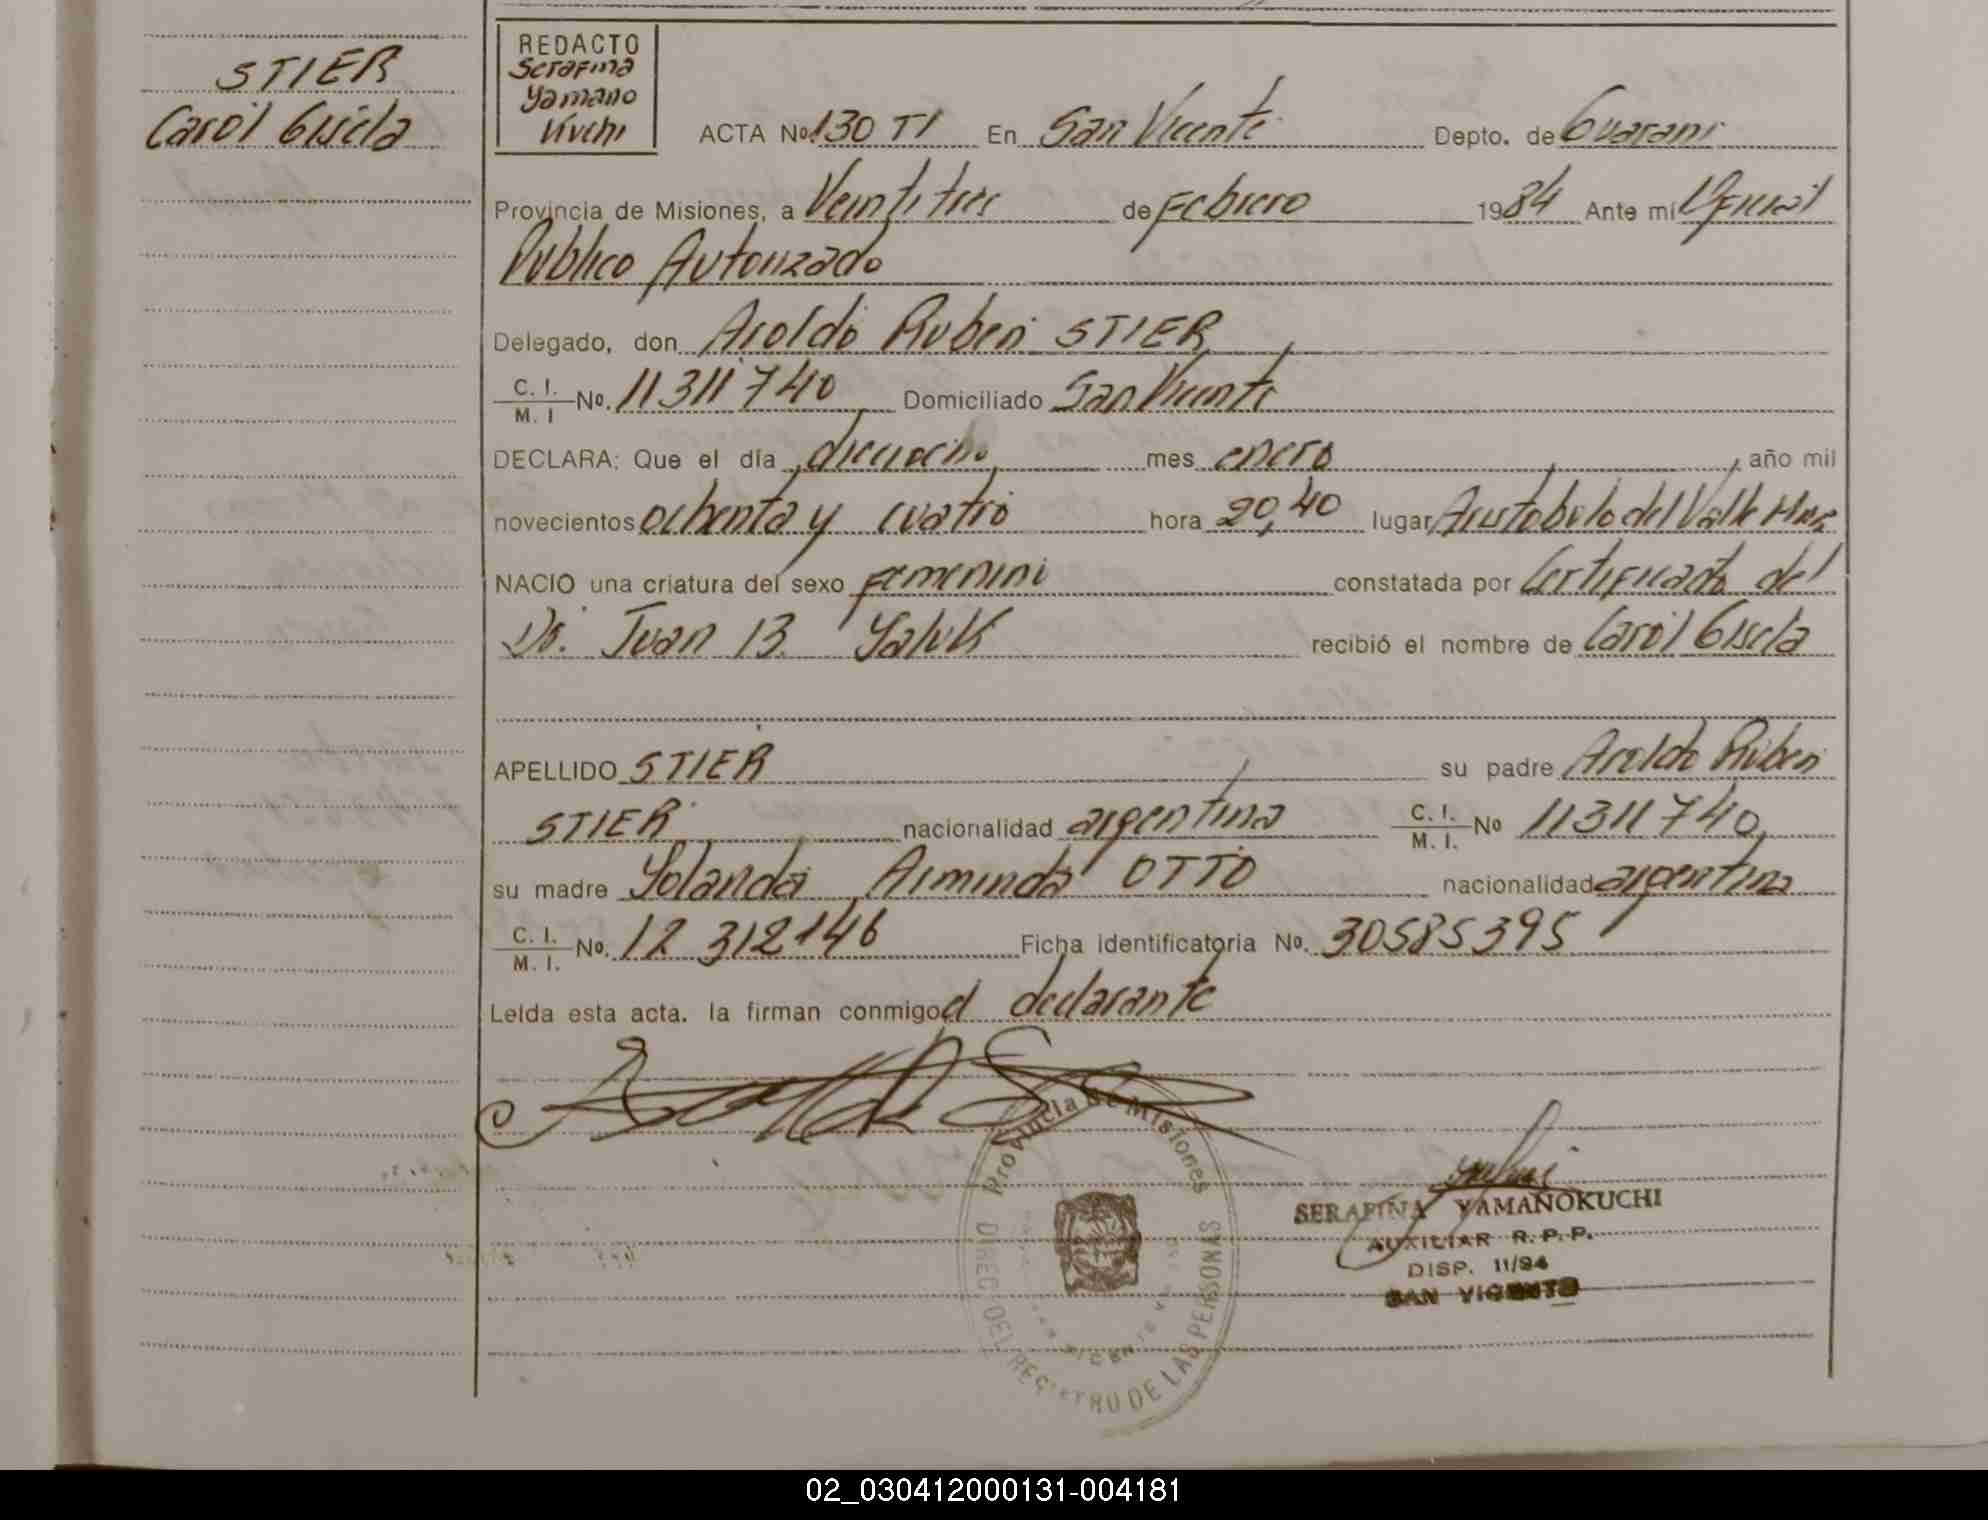 STIER
Carol Gisela
REDACTO
Serafina
Yamano
Kuchi
ACTA No. 130 TI En San Vicente Depto. de Guarani
Provincia de Misiones, a Veintitres de Febrero 1984 Ante mí Oficial
Publico Autorizado
Delegado, don Aroldo Ruben STIER
C. I. / M. I No. 11311740 Domiciliado San Vicente
DECLARA: Que el día dieciocho mes enero, año mil
novecientos ochenta y cuatro hora 20,40 lugar Aristobulo del Valle Mnes
NACIO una criatura del sexo femenino constatada por Certificado del
Dr. Juan B. recibió el nombre de Carol Gisela
APELLIDO STIER su padre Aroldo Ruben
STIER nacionalidad argentina C. I. / M. I. No 11311740,
su madre Yolanda Arminda OTTO nacionalidad argentina
C. I. / M. I. No. 12 312146 Ficha identificatoria No. 30585395
Leida esta acta. la firman conmigo el declarante
Provincia de Misiones
DIREC. DEL REGISTRO DE LAS PERSONAS
SAN VICENTE
SERAFINA YAMANOKUCHI
AUXILIAR R. P. P.
DISP. 11/84
SAN VICENTE
02_030412000131-004181